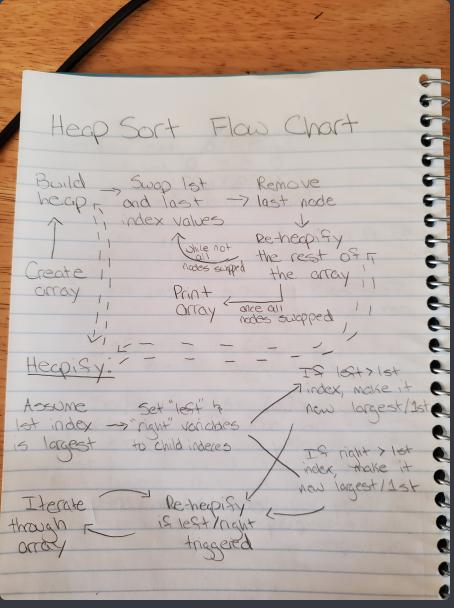 Heap Sort Flow Chart
Build
heap
Swap 1st
and last
index values
Remove
last node
while not
all
nodes swapped
Re-heapify
the rest of
the array
Create
array
Print
array
once all
nodes swapped
Heapify:
Assume
1st index
is largest
Set "left" &
"right" variables
to child indexes
If left > 1st
index, make it
new largest/1st
If right > 1st
index, make it
new largest/1st
Re-heapify
if left/right
triggered
Iterate
through
array